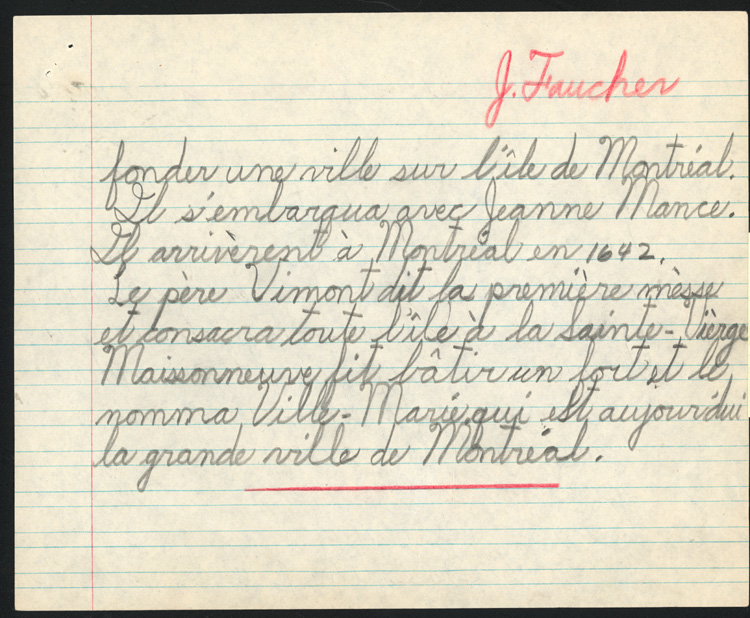 J. Faucher
fonder une ville sur l'île de Montréal.
Il s'embarqua avec Jeanne Mance.
Il arrivèrent à Montréal en 1642.
Le père Vimont dit la première mèsse
et consacra toute l'île à la Sainte-Vièrge
Maissonneuve fit bâtir un fort et le
nomma Ville-Marie qui est aujourdui
la grande ville de Montréal.